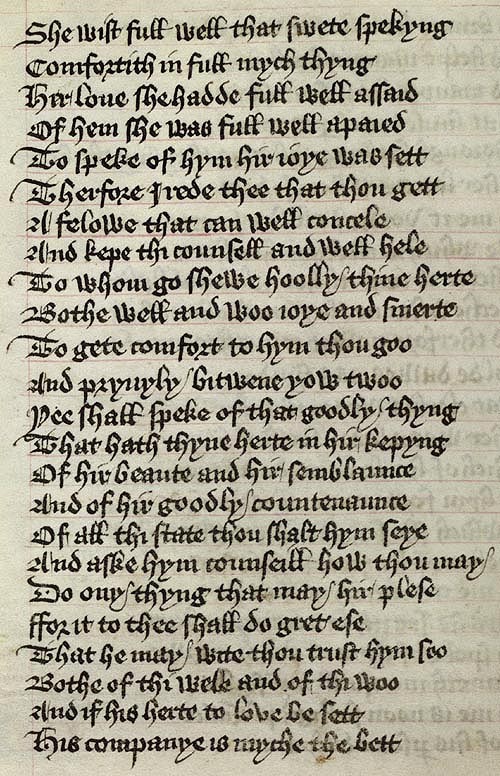 She wist full well that swete spekyng
Comfortith in full mych thyng
Hir loue she hadde full well assaid
Of hem she was full well apaied
To speke of hym hir ioye was sett
Therfore I rede thee that thou gett
A felowe that can well concele
And kepe thi counsell and well hele
To whom go shewe hoolly thine herte
Bothe well and woo ioye and smerte
To gete comfort to hym thou goo
And pryuyly bitwene yow twoo
Yee shall speke of that goodly thyng
That hath thyne herte in hir kepyng
Of hir beaute and hir semblaunce
And of hir goodly countenaunce
Of all thi state thou shalt hym seye
And aske hym counseill how thou may
Do ony thyng that may hir plese
ffor it to thee shall do gret ese
That he may wite thou trust hym soo
Bothe of thi wele and of thi woo
And if his herte to love be sett
His companye is myche the bett